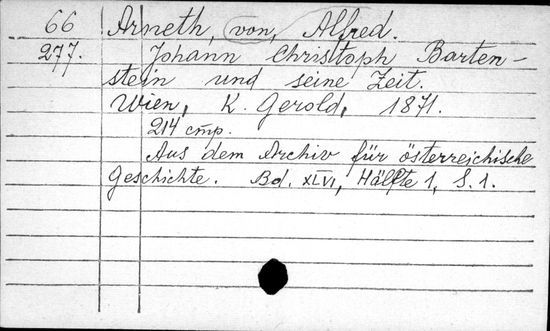 66 Arneth, von, Alfred.
277. Johann Christoph Barten-
stein und seine Zeit.
Wien, K. Gerold, 1871.
214 стр.
Aus dem Archiv für österreichische
Geschichte. Bd. XLVI, Hälfte 1, S. 1.